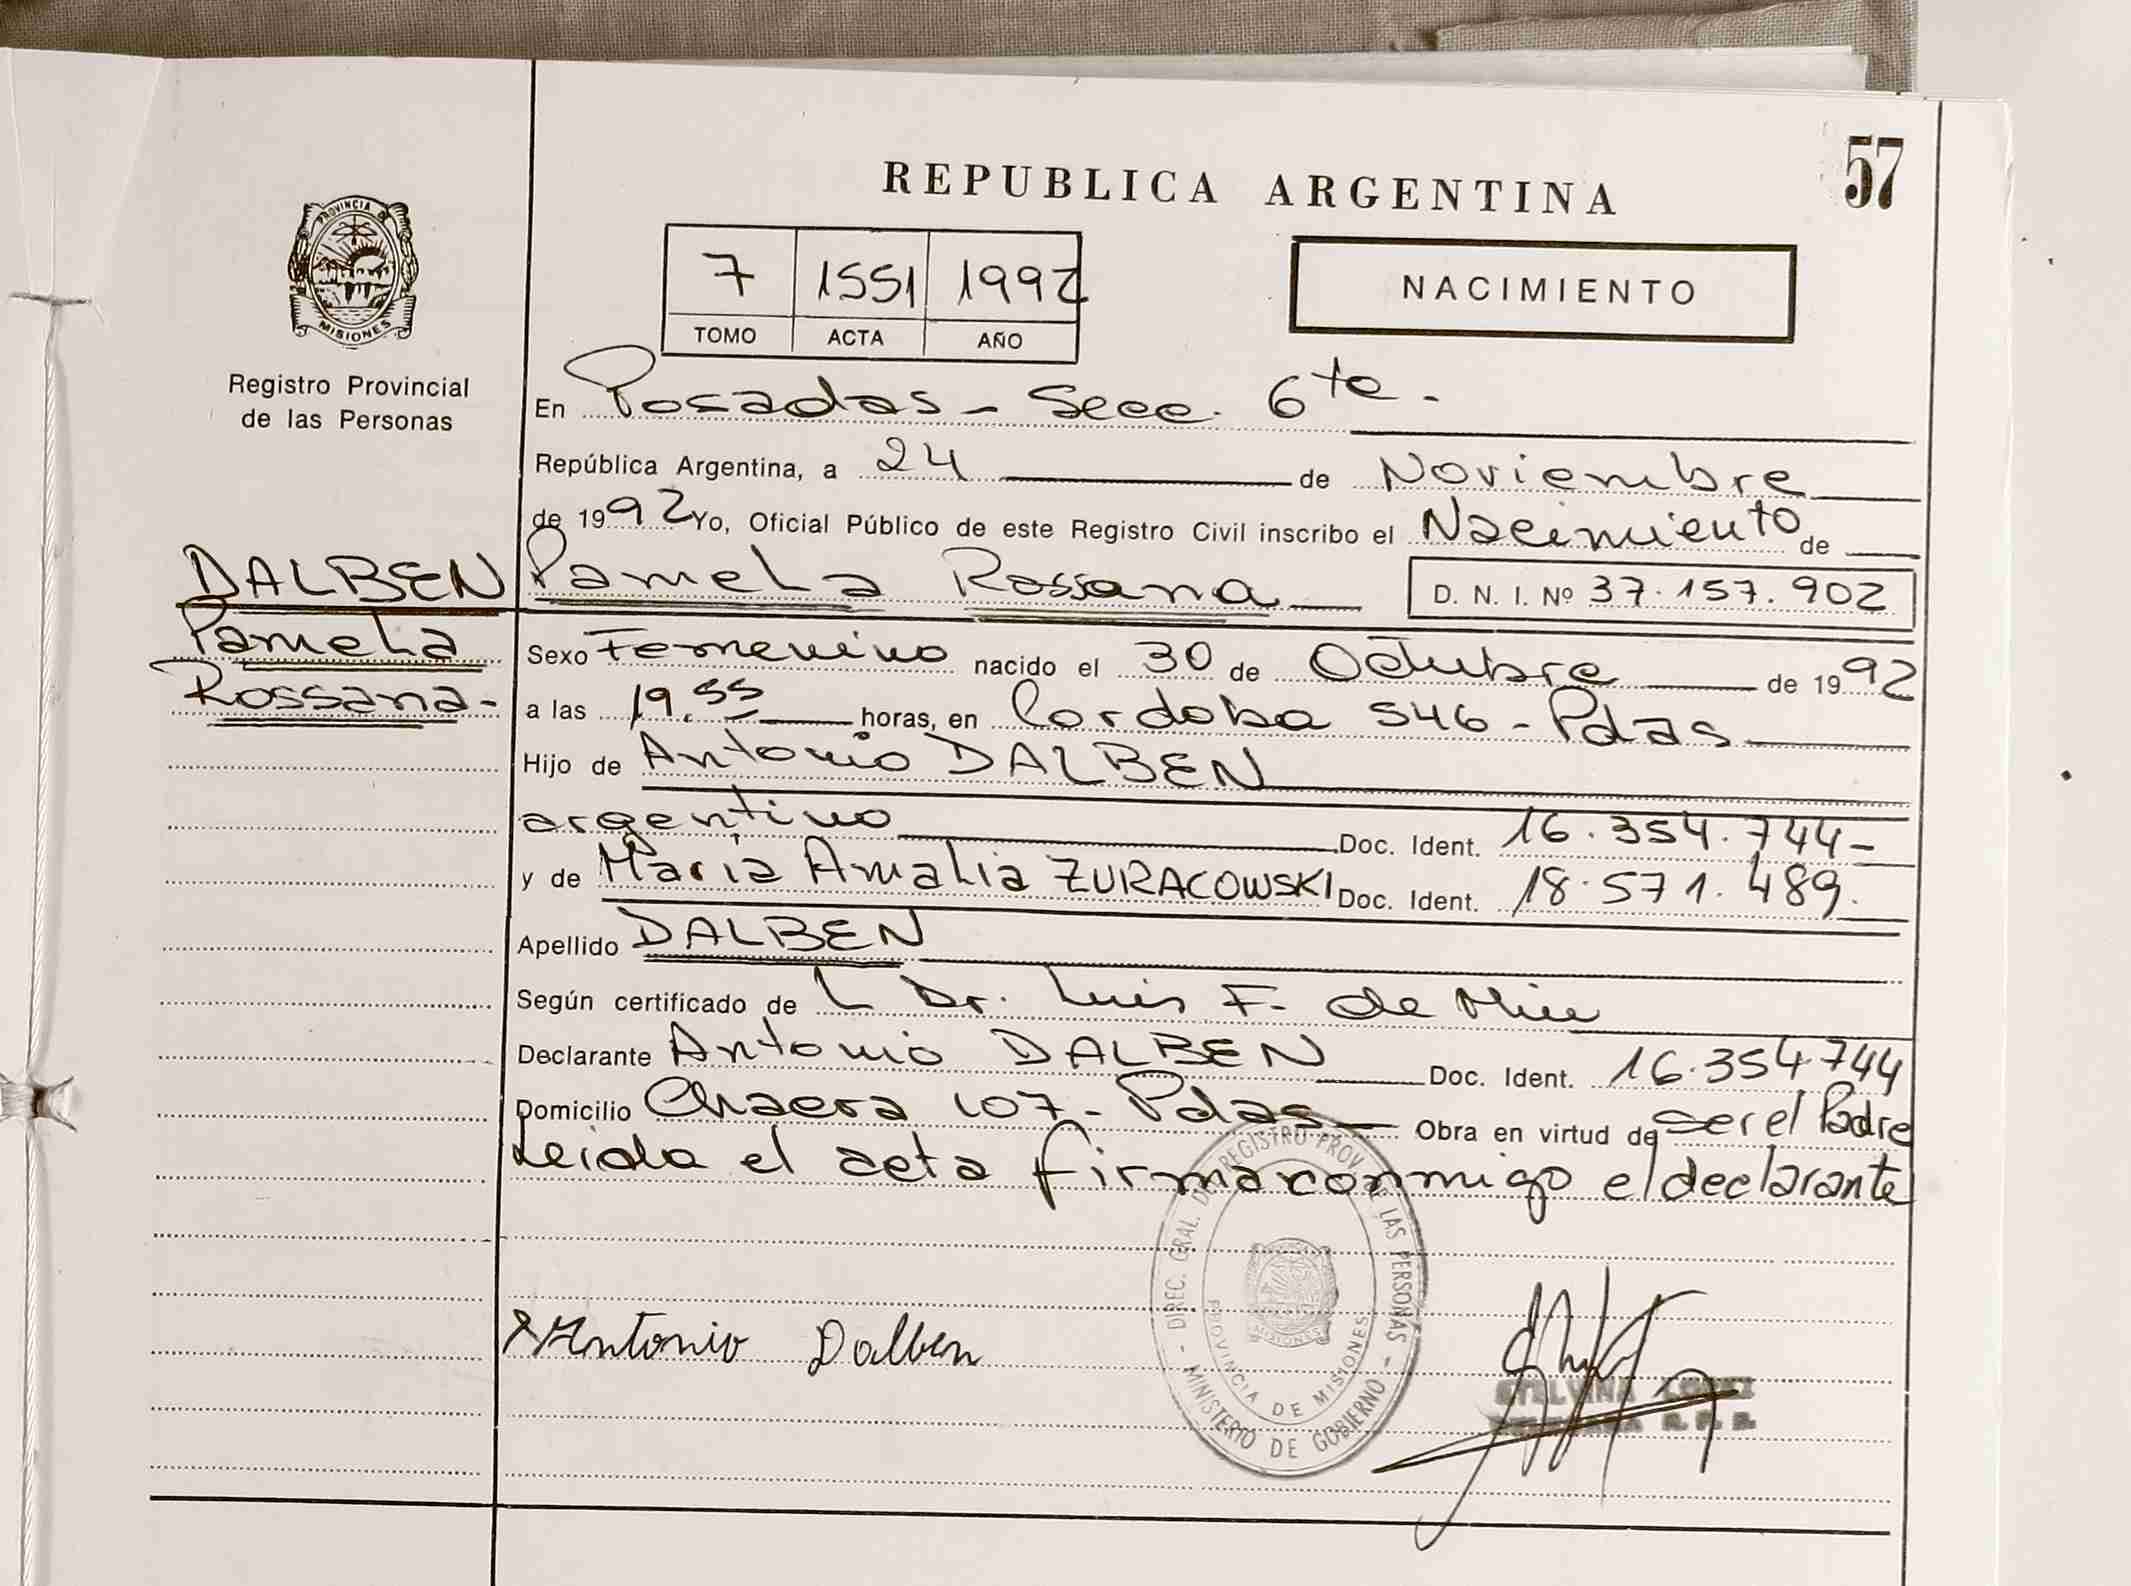 57
REPUBLICA ARGENTINA
PROVINCIA DE
MISIONES
7 1551 1992
TOMO ACTA AÑO
NACIMIENTO
Registro Provincial
de las Personas
En Posadas - Secc. 6ta -
República Argentina, a 24 de Noviembre
de 1992 Yo, Oficial Público de este Registro Civil inscribo el Nacimiento de
DALBEN
Pamela
Rossana -
Pamela Rossana D. N. I. Nº 37.157.902
Sexo Femenino nacido el 30 de Octubre de 1992
a las 19.55 horas, en Cordoba 546 - Pdas
Hijo de Antonio DALBEN
argentino Doc. Ident. 16.354.744 -
y de María Amalia ZURACOWSKI Doc. Ident. 18.571.489.
Apellido DALBEN
Según certificado de Dr. Luis F. de
Declarante Antonio DALBEN Doc. Ident. 16.354744
Domicilio Chacra 107 - Pdas Obra en virtud de ser el Padre
Leida el acta firma conmigo el declarante
DIREC. GRAL. DEL REGISTRO PROV. DE LAS PERSONAS - MINISTERIO DE GOBIERNO -
PROVINCIA DE MISIONES
MISIONES
Antonio Dalben